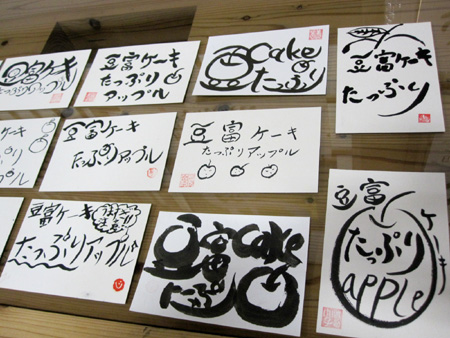 豆富ケーキ
たっぷりアップル
豆富ケーキ
たっぷり
アップル
Cake
たっぷり
豆富ケーキ
たっぷり
ケーキ
たっぷりアップル
豆富ケーキ
たっぷりアップル
豆富ケーキ
たっぷりアップル
豆富ケーキ
たっぷりアップル
豆富Cake
たっぷり
豆富
ケーキ
たっぷり
apple